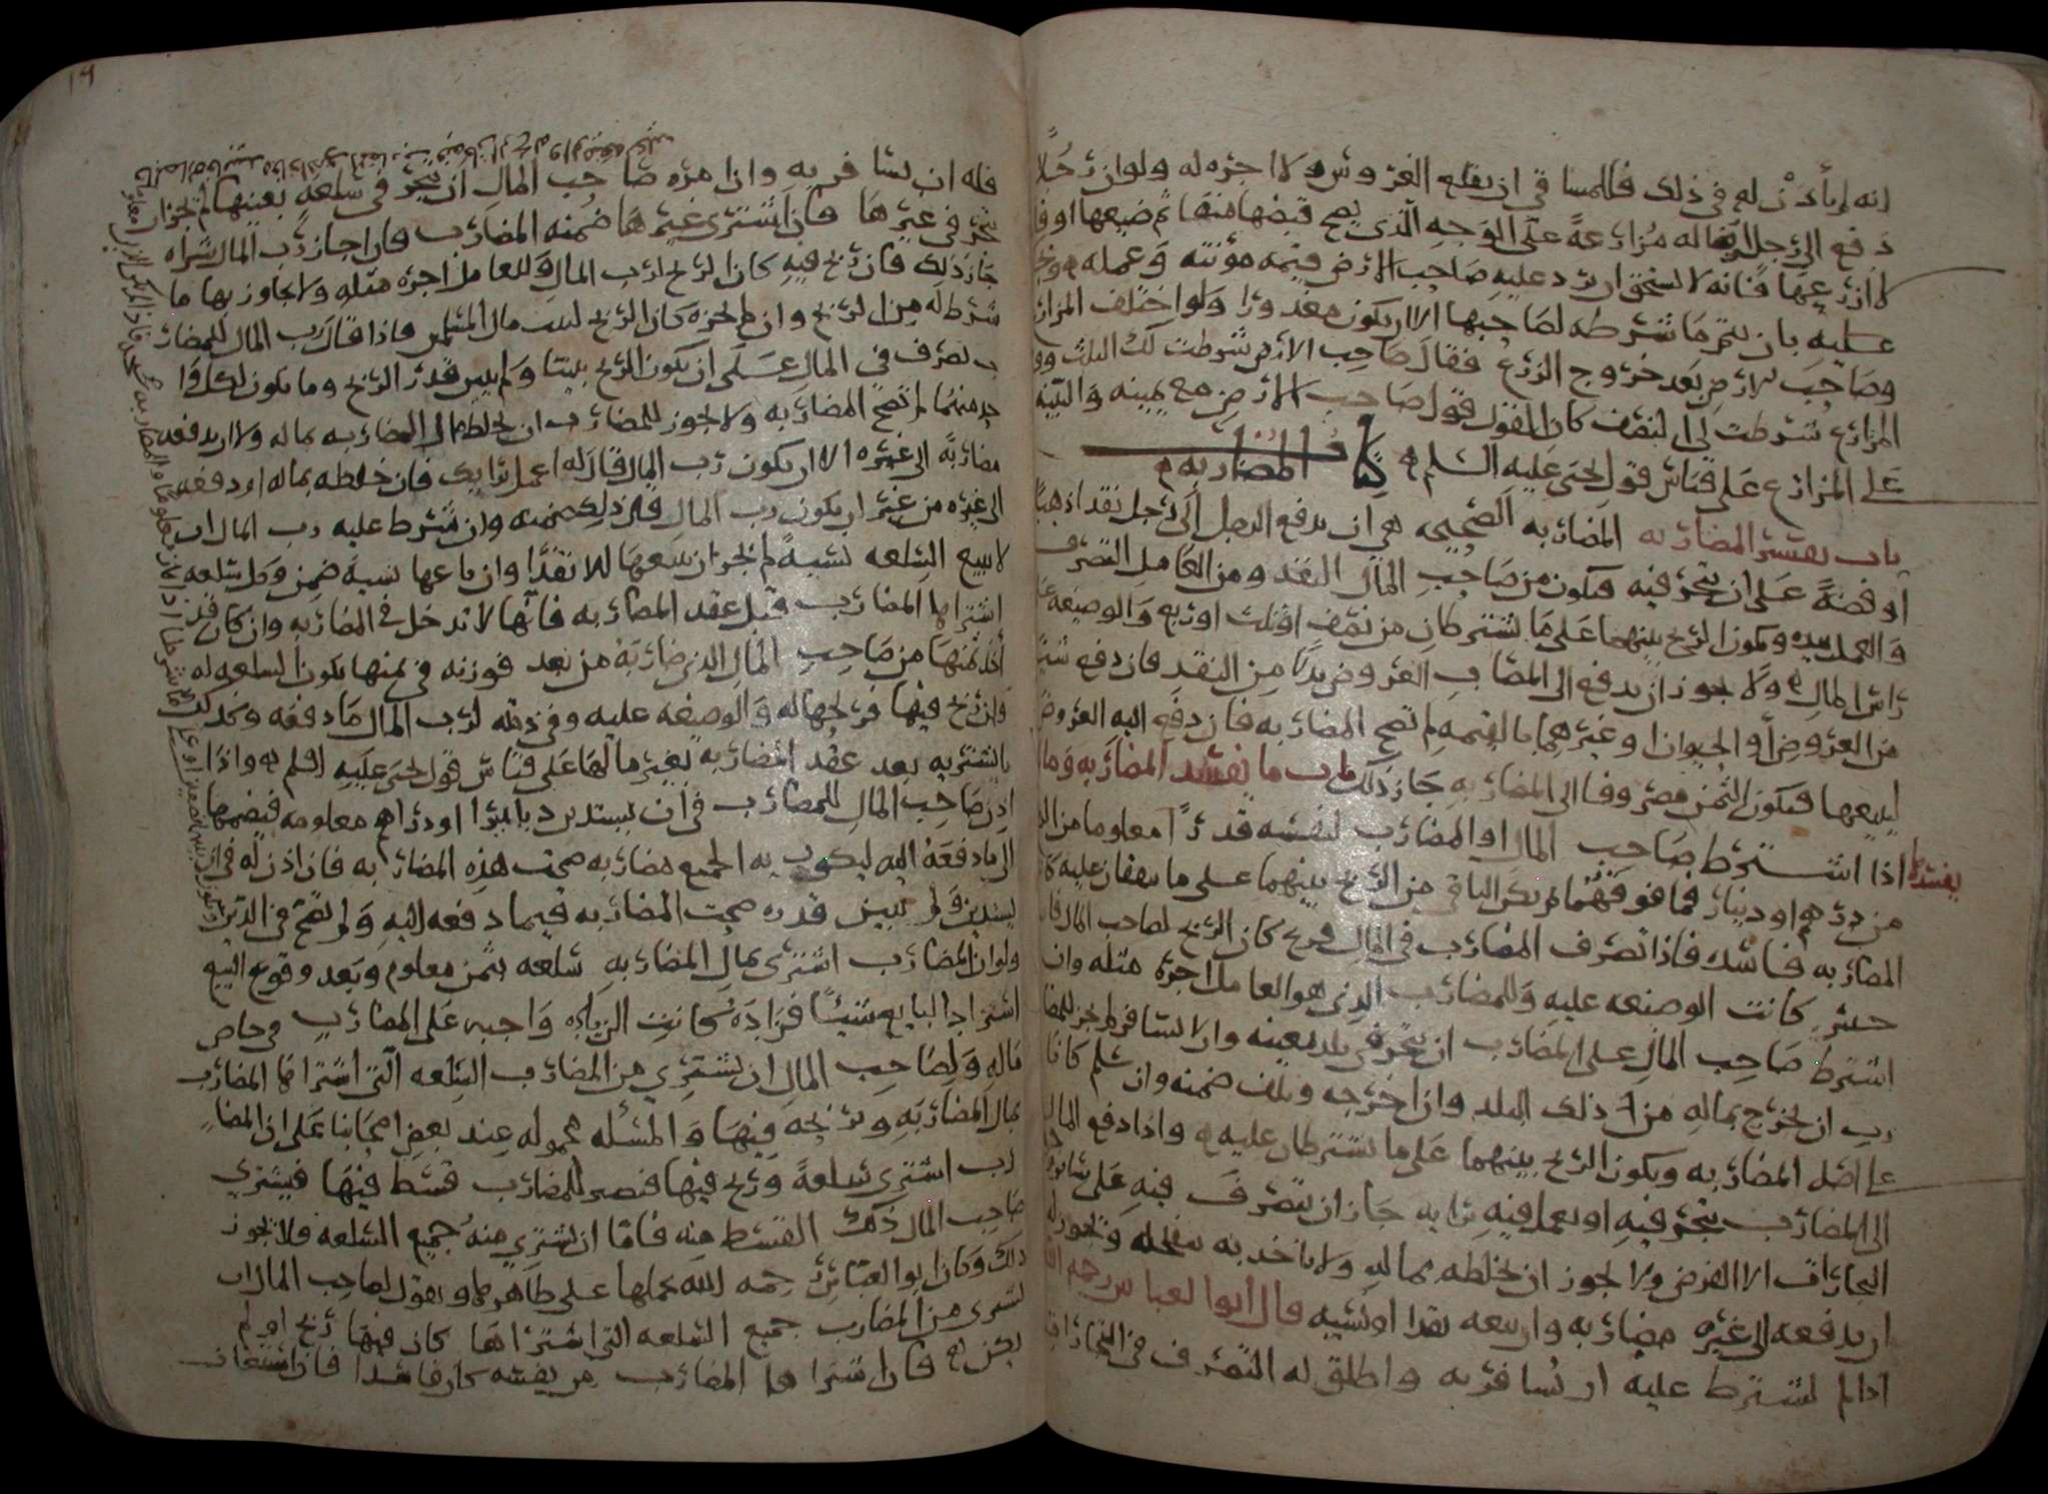 انه لم يأذن له في ذلك فللمساقي ان يقلع الغروس ولا اجره له ولو ان رجلا
دفع الى رجل ارضا له مزارعة على الوجه الذي يصح قبضها منه ثم ضيعها او
لا ازرعها فانه لا يستحق ان يرد عليه صاحب الارض قيمه مؤنته وعمله
عليه بان يتم ما شرطه لصاحبها الا ان يكون معذورا ولو اختلف المزارع
وصاحب الارض بعد خروج الزرع فقال صاحب الارض شرطت لك الثلث
المزارع شرطت لي النصف كان القول قول صاحب الارض مع يمينه والبينه
على المزارع على قياس قول يحيى عليه السلم كتاب المضاربه
باب تفسير المضاربه المضاربه الصحيحه هي ان يدفع الرجل الى رجل نقدا ذهبا
او فضة على ان يتجر فيه فيكون من صاحب المال النقد ومن العامل التصرف
والعمل بيده ويكون الربح بينهما على ما يشتركان من نصف او ثلث او ربع والوضيعه على
راس المال ولا يجوز ان يدفع الى المضارب العروض بدلا من النقد فان دفع شيئا
من العروض او الحيوان او غيرهما بالقيمه لم تصح المضاربه فان دفع اليه العروض
ليبيعها فيكون الثمن مصروفا الى المضاربه جاز ذلك باب ما يفسد المضاربه وما لا
يفسدها اذا اشترط صاحب المال او المضارب لنفسه قدرا معلوما من
من درهم او دينار فما فوقهما لم يكن الباقي من الربح بينهما على ما يتفقان عليه
المضاربه فاسده فاذا تصرف المضارب في المال فربح كان الربح لصاحب المال
خسر كانت الوضيعه عليه وللمضارب الذي هو العامل اجرة مثله وان
اشترط صاحب المال على المضارب ان يتجر في بلد بعينه وان لا يسافر لم يجز
رب ان يخرج بماله من ذلك البلد وان اخرجه وتلف ضمنه وان سلم كانا
على اصل المضاربه ويكون الربح بينهما على ما يشترطان عليه واذا دفع المال
الى المضارب يتجر فيه او يعمل فيه برايه جاز ان يتصرف فيه على سائر
التجارات الا القرض ولا يجوز ان يخلطه بماله ولا ياخذ به ويجوز
ان يدفعه الى غيره مضاربه وان يبيعه نقدا او نسيه قال ابو العباس رحمه الله
اذا لم يشترط عليه ان يسافر به واطلق له التصرف في التجارات
فله ان يسافر به واذا امره صاحب المال ان يتجر في سلعه بعينها لم يجز ان
يتجر في غيرها فان اشترى غيرها ضمنه المضارب فان اجاز رب المال شراه
جاز ذلك فان ربح فيه كان الربح لرب المال وللعامل اجرة مثله ولا يجاوز بها ما
شرط له من الربح وان لم يجزه كان الربح لبيت مال المسلمين واذا قال رب المال للمضار
ب تصرف في المال على ان يكون الربح بيننا ولم يبين قدر الربح وما يكون لكل وا
حد منهما لم تصح المضاربه ولا يجوز للمضارب ان يخلط مال المضاربه بماله ولا ان يدفعه
مضاربة الى غيره الا ان يكون رب المال قال له اعمل برايك فان خلطه بماله او دفعه
الى غيره من غير ان يكون رب المال قال ذلك ضمنه وان شرط عليه رب المال ان
لا يبيع السلعه نسية لم يجز ان يبيعها الا نقدا وان باعها نسية ضمن وكل سلعه
اشتراها المضارب قبل عقد المضاربه فانها لا تدخل في المضاربه وان كان قد
اخذ ثمنها من صاحب المال الذي ضاربه من بعد فوزنه في ثمنها يكون السلعه له
وان ربح فيها فربحها له والوضيعه عليه وفي ذمته لرب المال ما دفعه وكذلك
ما يشتريه بعد عقد المضاربه بغير مالها على قياس قول يحيى عليه السلم واذا
اذن صاحب المال للمضارب في ان يستدين دنانيرا او دراهم معلومه فيضمها
الى ما دفعه اليه ليكون به الجميع مضاربه صحت هذه المضاربه فان اذن له في ان
يستدين ولم يبين قدره صحت المضاربه فيما دفعه اليه ولم تصح في الدين
ولو ان المضارب اشترى بمال المضاربه سلعه بثمن معلوم وبعد وقوع البيع
استزاد البايع شيئا فزاده كانت الزياده واجبه على المضارب في خاص
ماله ولصاحب المال ان يشتري من المضارب السلعه التي اشتراها المضارب
بمال المضاربه ويربحه فيها والمسئله محموله عند بعض اصحابنا على ان المضا
رب اشترى سلعة وربح فيها فيصير للمضارب قسط فيها فيشتري
صاحب المال ذلك القسط منه فاما ان يشتري منه جميع السلعه فلا يجوز
ذلك وكان ابو العباس رحمه الله يحملها على ظاهرها ويقول لصاحب المال ان
يشتري من المضارب جميع السلعه التي اشتراها كان فيها ربح او لم
يكن فان اشتراها المضارب من نفسه كان فاسدا فان استعان